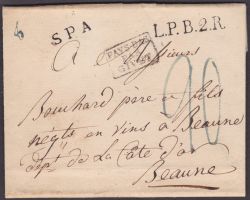 SPA
L.P.B.2.R
PAYS-BAS
GIVET
A
20
Bouchard père et fils
négts en vins à Beaune
dépt de La Côte d'or
Beaune